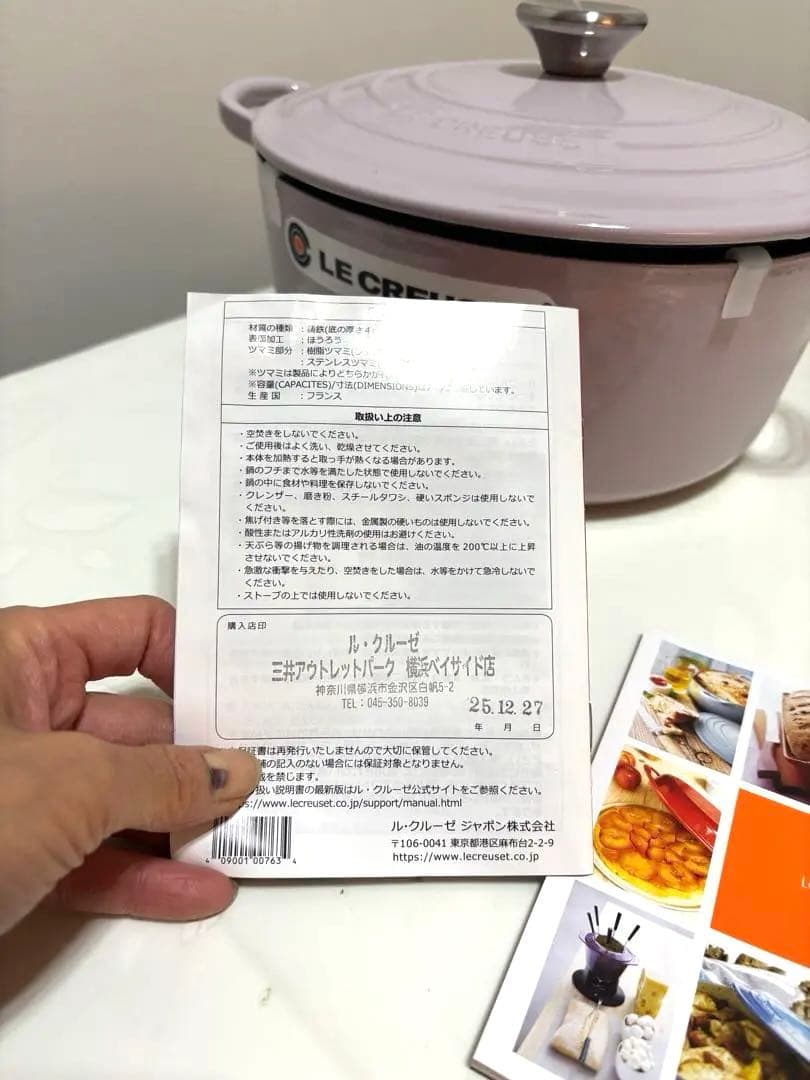 LE CREUSET
LE CREUSET
材質の種類 : 鋳鉄(底の厚さ4
表面加工 : ほうろう
ツマミ部分 : 樹脂ツマミ
: ステンレスツマミ
※ツマミは製品によりどちらかが
※容量(CAPACITES)/寸法(DIMENSIONS)は います。
生産国 : フランス
取扱い上の注意
・空焚きをしないでください。
・ご使用後はよく洗い、乾燥させてください。
・本体を加熱すると取っ手が熱くなる場合があります。
・鍋のフチまで水等を満たした状態で使用しないでください。
・鍋の中に食材や料理を保存しないでください。
・クレンザー、磨き粉、スチールタワシ、硬いスポンジは使用しないで
ください。
・焦げ付き等を落とす際には、金属製の硬いものは使用しないでください。
・酸性またはアルカリ性洗剤の使用はお避けください。
・天ぷら等の揚げ物を調理される場合は、油の温度を 200℃以上に上昇
させないでください。
・急激な衝撃を与えたり、空焚きをした場合は、水等をかけて急冷しないで
ください。
・ストーブの上では使用しないでください。
購入店印
ル・クルーゼ
三井アウトレットパーク 横浜ベイサイド店
神奈川県横浜市金沢区白帆5-2
TEL:045-350-8039
25.12.27
年 月 日
保証書は再発行いたしませんので大切に保管してください。
舗の記入のない場合には保証対象となりません。
を禁じます。
扱い説明書の最新版はル・クルーゼ公式サイトをご参照ください。
://www.lecreuset.co.jp/support/manual.html
4 09001 00763 4
ル・クルーゼ ジャポン株式会社
〒106-0041 東京都港区麻布台2-2-9
https://www.lecreuset.co.jp